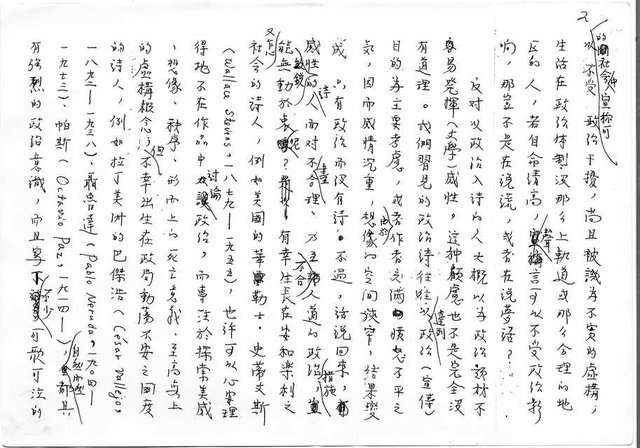 2
的國社会中宣称可
以不受政治干擾，尚且被譏為不實的虛構；
生活在政治体制没那么上軌道或那么合理的地
區的人，若自命清高，聲言可以不受政治影
响，那豈不是在說謊，或者在說夢話？
反对以政治入诗的人大概以为政治題材不
容易発揮（文學）感性。这种顧慮也不是完全没
有道理。我們習見的政治诗往往以政治（宣傳）達到
目的为主要考慮，或者作者充满憤怒不平之
氣，因而感情沉重，想像的空间狹窄，结果变
成，有政治而没有诗。不過，话說回来，
感性的诗人面对不合理、不人道的政治措施
能無動於衷呢？有幸生長在安和樂利之
社会的诗人，例如美國的華勒士·史蒂文斯
（Wallace Stevens，一八七九—一九五五），也许可以心安理
得地不在作品中討論政治，而專注於探索美感
、想像、秩序、形而上的死亡意義、至高無上
的虛構报念；但不幸出生在政局動荡不安之國度
的诗人，例如拉丁美洲的巴傑浩（César Vallejo，
一八九三—一九三八）、聶魯達（Pablo Neruda，一九〇四—
一九七三）、帕斯（Octavio Paz，一九一四—），自然而然都具
有強烈的政治意識，而且寫下不少可歌可泣的